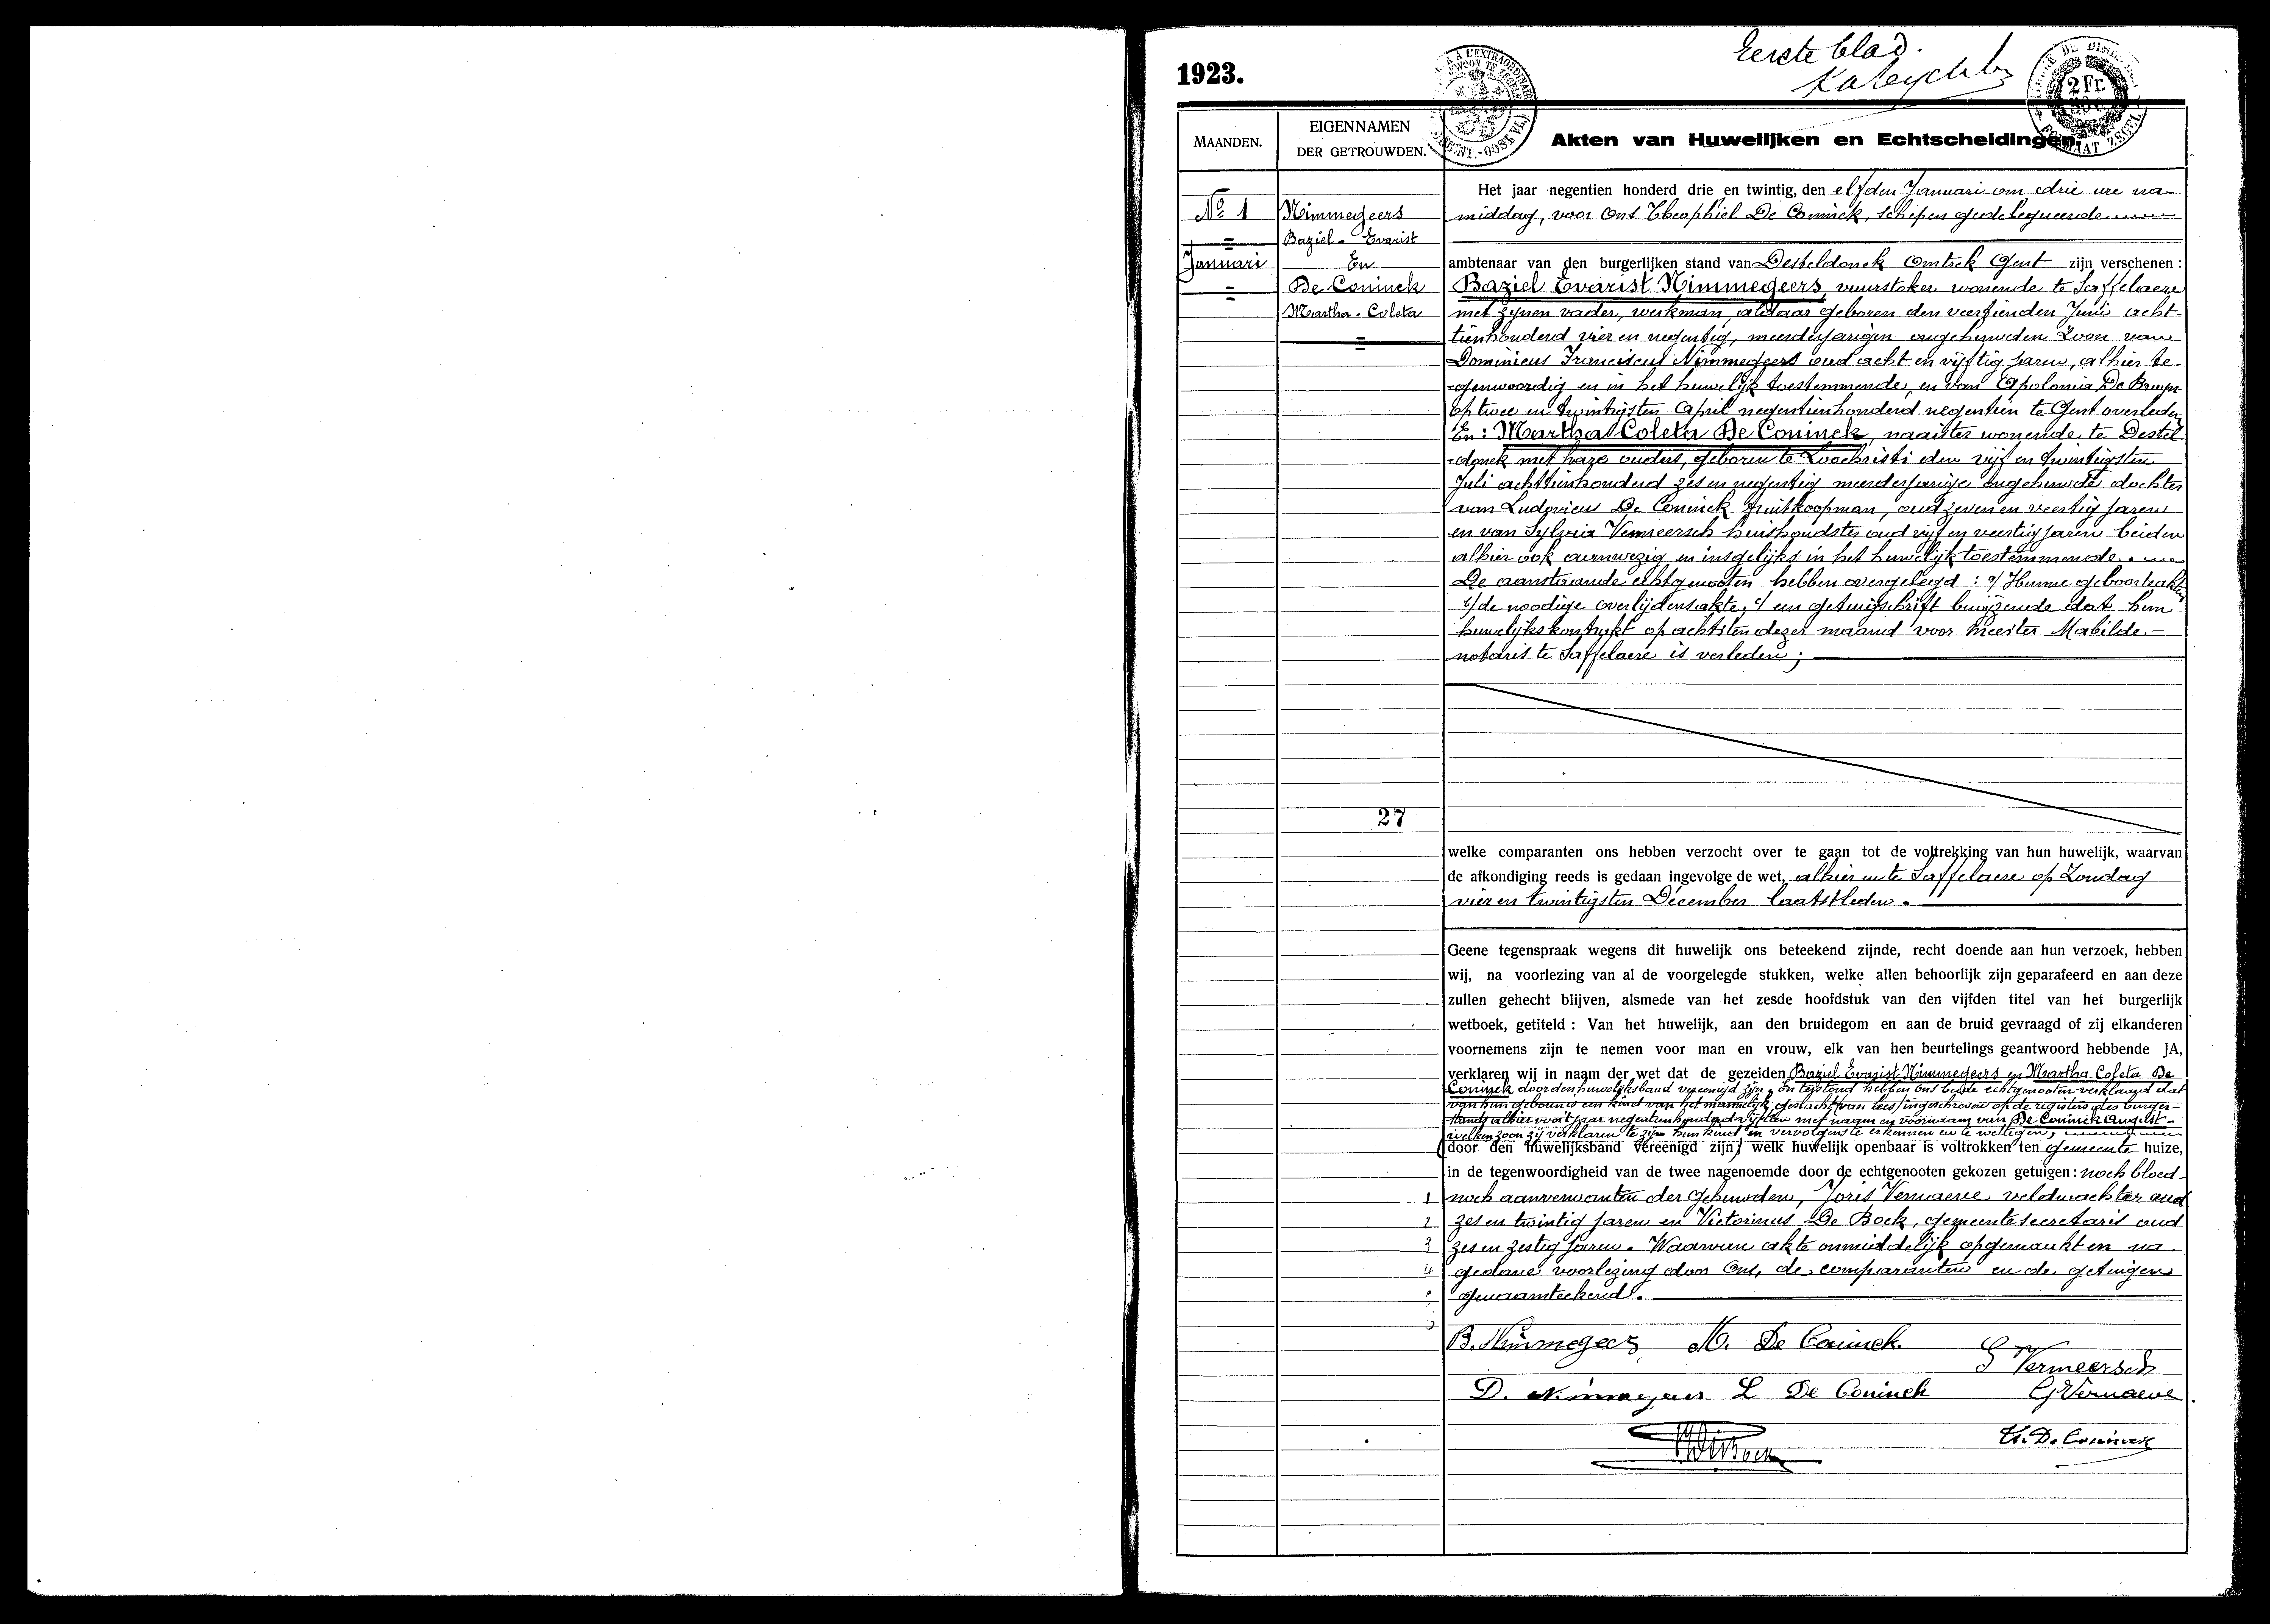 Eerste blad.
1923.
2 Fr.
MAANDEN.
EIGENNAMEN
DER GETROUWDEN.
Akten van Huwelijken en Echtscheidingen.
No 1
Januari
Nimmegeers
Baziel-Evarist
En
De Coninck
Martha-Coleta
27
Het jaar negentien honderd drie en twintig, den elfden Januari om drie ure na-
middag, voor Ons Theophiel De Coninck, schepen gedelegueerde
ambtenaar van den burgerlijken stand van Desteldonck Omtrek Gent zijn verschenen :
Baziel Evarist Nimmegeers, vuurstoker wonende te Saffelaere
met zijnen vader, werkman, aldaar geboren den veertienden Juni acht-
tienhonderd vier en negentig, meerderjarigen ongehuwden Zoon van
Dominicus Franciscus Nimmegeers oud acht en vijftig jaren, alhier te-
-genwoordig en in het huwelijk toestemmende, en van Apolonia De Bruyn
op twee en twintigsten April negentienhonderd negentien te Gent overleden
En : Martha Coleta De Coninck, naaister wonende te Destel-
-donck met hare ouders, geboren te Loochristi den vijf en twintigsten
Juli achttienhonderd zes en negentig meerderjarige ongehuwde dochter
van Ludovicus De Coninck fruitkoopman, oud zeven en veertig jaren
en van Sylvia Vermeersch huishoudster oud vijf en veertig jaren beiden
alhier ook aanwezig en insgelijks in het huwelijk toestemmende.
De aanstaande echtgenooten hebben overgelegd : a/ Hunne geboorteakten
b/ de noodige overlijdensakte, c/ een getuigschrift bewijzende dat hun
huwelijkskontrakt op achtsten dezer maand voor Meester Mabilde-
notaris te Saffelaere is verleden ;
welke comparanten ons hebben verzocht over te gaan tot de voltrekking van hun huwelijk, waarvan
de afkondiging reeds is gedaan ingevolge de wet, alhier en te Saffelaere op Zondag
vier en twintigsten December laatstleden.
Geene tegenspraak wegens dit huwelijk ons beteekend zijnde, recht doende aan hun verzoek, hebben
wij, na voorlezing van al de voorgelegde stukken, welke allen behoorlijk zijn geparafeerd en aan deze
zullen gehecht blijven, alsmede van het zesde hoofdstuk van den vijfden titel van het burgerlijk
wetboek, getiteld : Van het huwelijk, aan den bruidegom en aan de bruid gevraagd of zij elkanderen
voornemens zijn te nemen voor man en vrouw, elk van hen beurtelings geantwoord hebbende JA,
verklaren wij in naam der wet dat de gezeiden Baziel Evarist Nimmegeers en Martha Coleta De
Coninck door den huwelijksband vereenigd zijn. En terstond hebben ons beide echtgenooten verklaard dat
van hun geboren is een kind van het mannelijk geslacht ingeschreven op de registers des burger-
stands alhier voor 't jaar negentienhonderd vijftien met naam en voornaam van De Coninck August-
welken zoon zij verklaren te zijn hun kind en vervolgens te erkennen en te wettigen,
(door den huwelijksband vereenigd zijn) welk huwelijk openbaar is voltrokken ten gemeente huize,
in de tegenwoordigheid van de twee nagenoemde door de echtgenooten gekozen getuigen : noch bloed-
1 noch aanverwanten der gehuwden, Joris Vernaeve veldwachter oud
2 zes en twintig jaren en Victorinus De Bock, gemeentesecretaris oud
3 zes en zestig jaren. Waarvan akte onmiddelijk opgemaakt en na
4 gedane voorlezing door Ons, de comparanten en de getuigen
genaamteekend.
B. Nimmegeers M. De Coninck.
S Vermeersch
D. Nimmegeers L De Coninck
G Vernaeve
VDeBock
Th. De Coninck